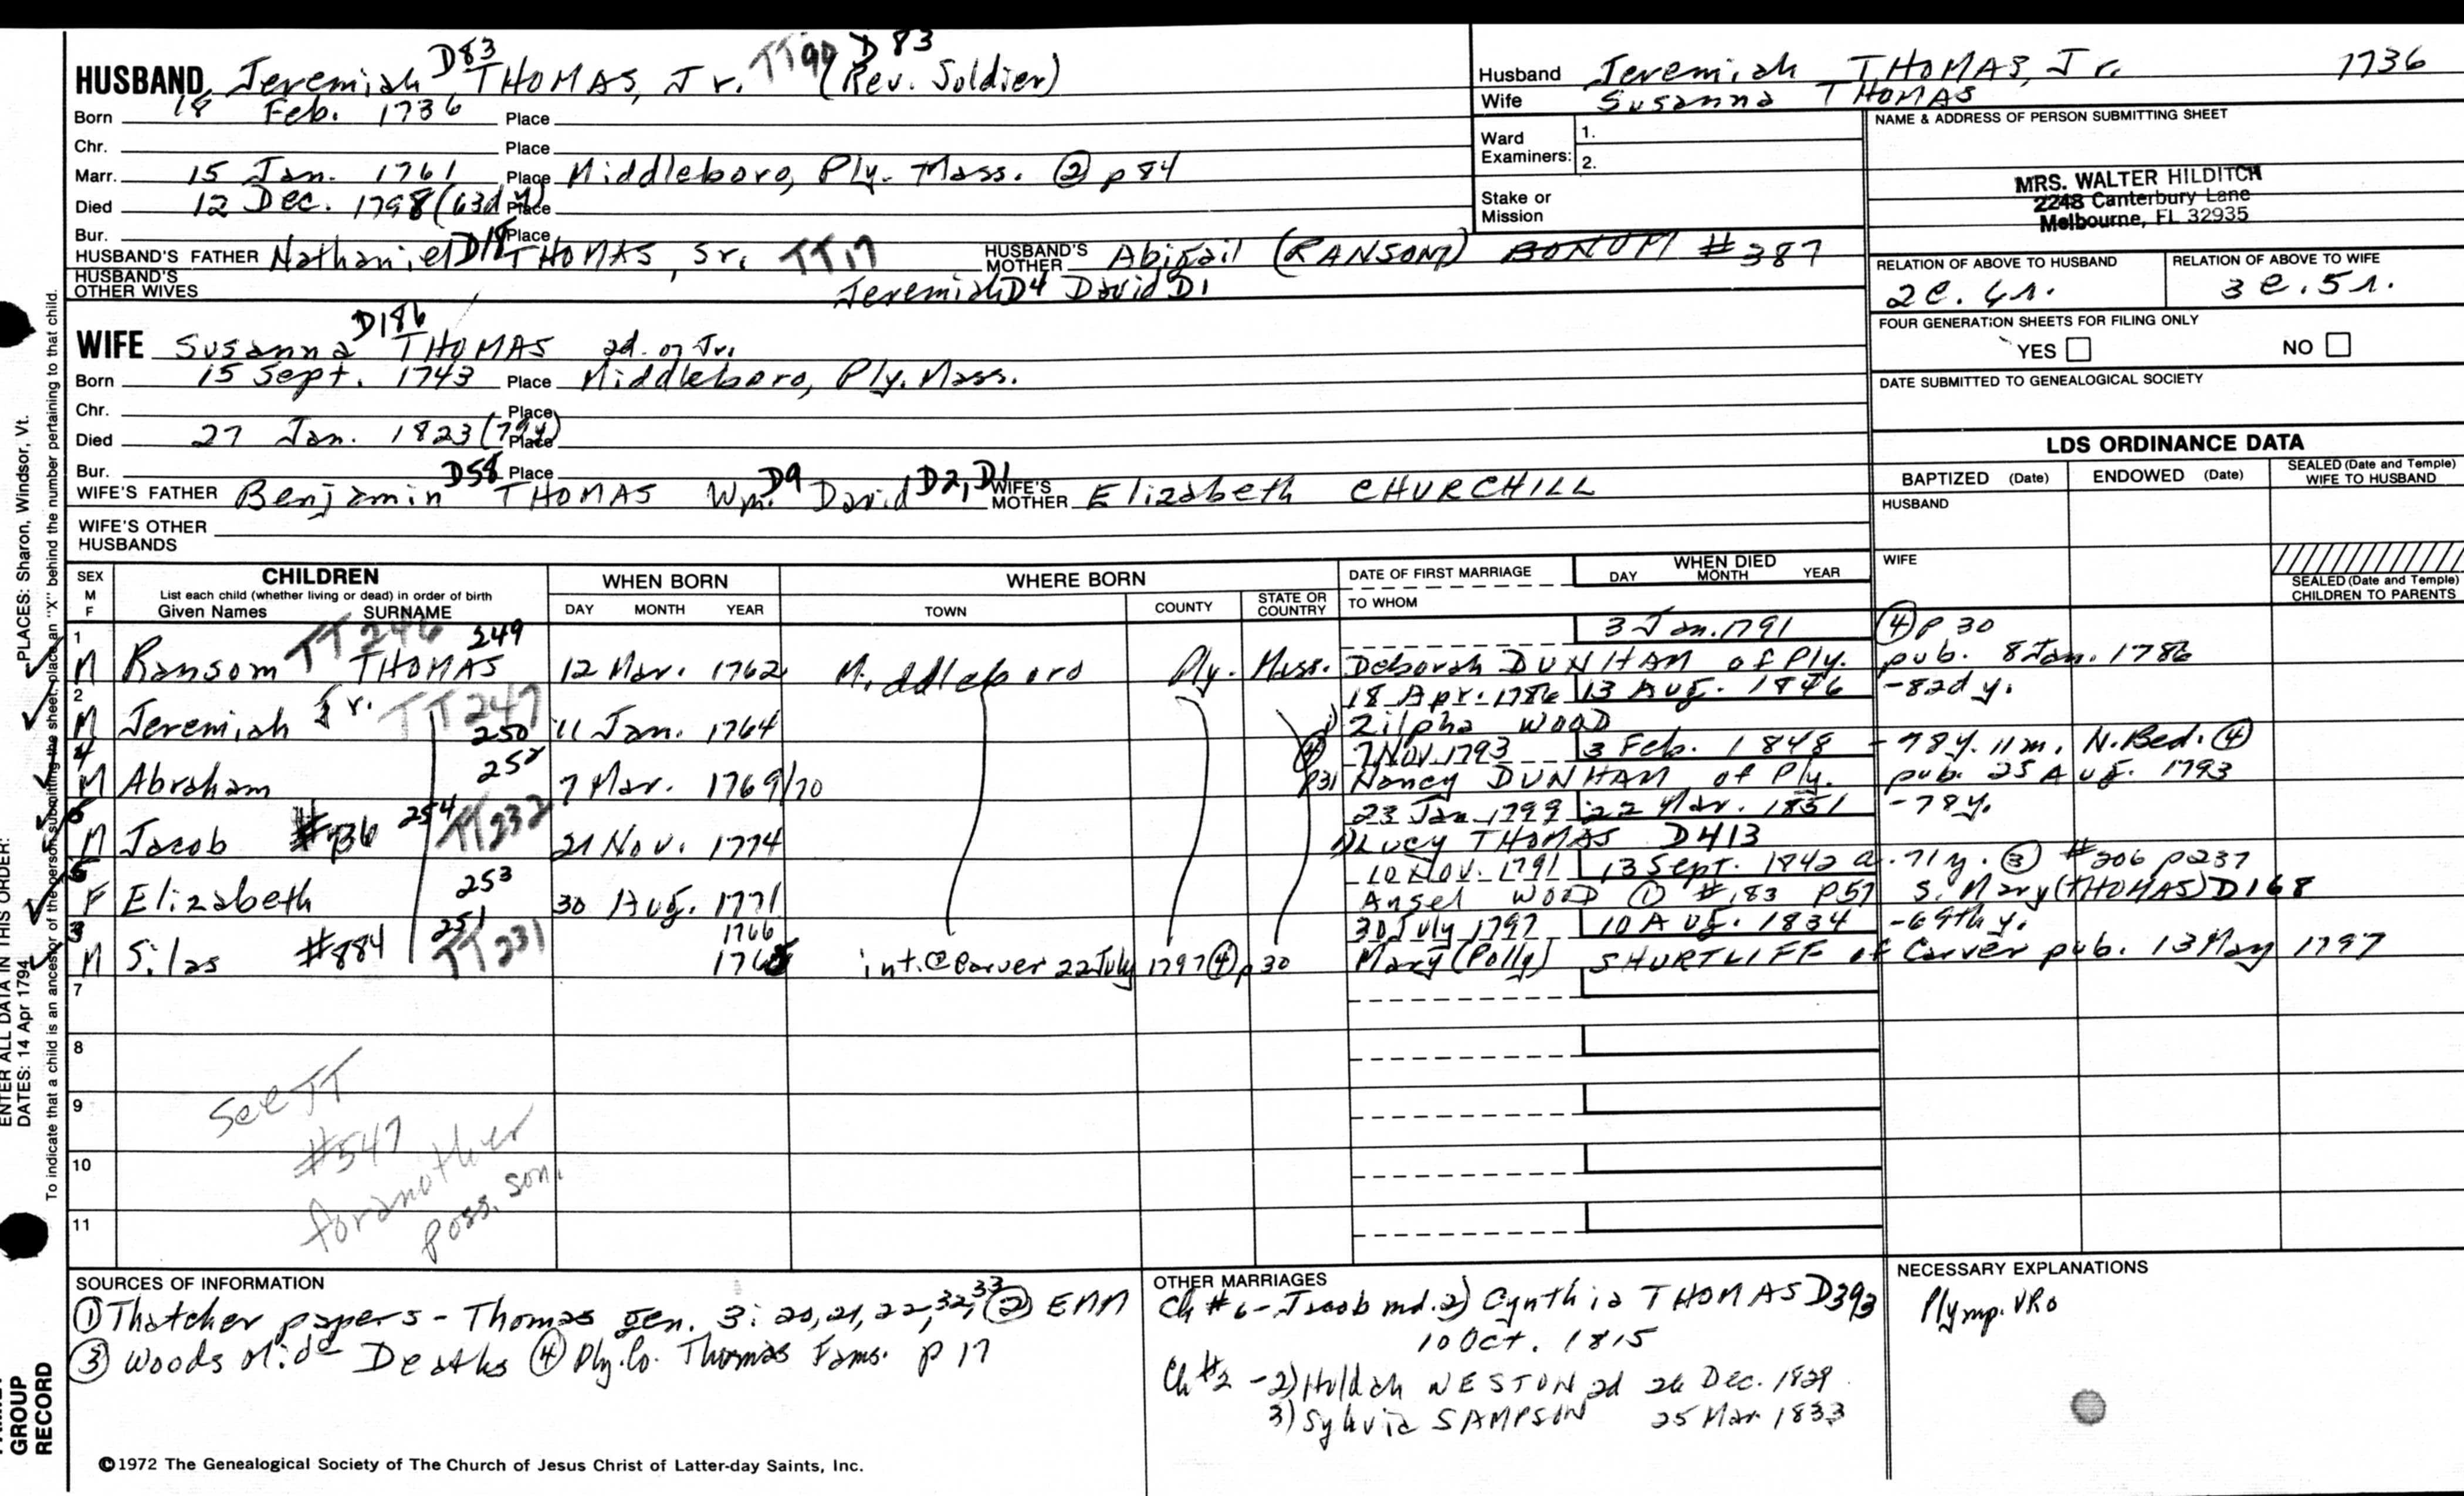 HUSBAND Jeremiah D83 THOMAS, Jr. TT90 (Rev. Soldier) D83
Born 18 Feb. 1736 Place
Chr. Place
Marr. 15 Jan. 1761 Place Middleboro, Ply. Mass. ② p 84
Died 12 Dec. 1798 (63d y) Place
Bur. Place
HUSBAND'S FATHER Nathaniel D18 THOMAS, Sr. TT17 HUSBAND'S MOTHER Abigail (RANSOM) BONUM #387
HUSBAND'S OTHER WIVES Jeremiah D4 David D1
WIFE Susanna D186 THOMAS 2d. or Jr.
Born 15 Sept. 1743 Place Middleboro, Ply. Mass.
Chr. Place
Died 27 Jan. 1823 (79y) Place
Bur. Place
WIFE'S FATHER Benjamin D58 THOMAS Wm. D9 David D2, D1 WIFE'S MOTHER Elizabeth CHURCHILL
WIFE'S OTHER HUSBANDS
Husband Jeremiah THOMAS, Jr. 1736
Wife Susanna THOMAS
Ward Examiners: 1.
2.
Stake or Mission
NAME & ADDRESS OF PERSON SUBMITTING SHEET
MRS. WALTER HILDITCH
2248 Canterbury Lane
Melbourne, FL 32935
RELATION OF ABOVE TO HUSBAND RELATION OF ABOVE TO WIFE
2c. 4r. 3c. 5r.
FOUR GENERATION SHEETS FOR FILING ONLY
YES NO
DATE SUBMITTED TO GENEALOGICAL SOCIETY
LDS ORDINANCE DATA
BAPTIZED (Date) ENDOWED (Date) SEALED (Date and Temple) WIFE TO HUSBAND
HUSBAND
WIFE
SEALED (Date and Temple) CHILDREN TO PARENTS
SEX M F CHILDREN List each child (whether living or dead) in order of birth Given Names SURNAME
WHEN BORN DAY MONTH YEAR
WHERE BORN TOWN COUNTY STATE OR COUNTRY
DATE OF FIRST MARRIAGE TO WHOM
WHEN DIED DAY MONTH YEAR
1 TT246 249 3 Jan. 1791 ④ p 30
M Ransom THOMAS 12 Mar. 1762 Middleboro Ply. Mass. Deborah DUNHAM of Ply. pub. 8 Jan. 1786
2 18 Apr. 1786 13 Aug. 1846 -82d y.
M Jeremiah Jr. TT247 250 11 Jan. 1764 1) Zilpha WOOD
4 252 7 Nov. 1793 3 Feb. 1848 -78y. 11m. N. Bed. ④
M Abraham 7 Mar. 1769/70 ④ p31 Nancy DUNHAM of Ply. pub. 25 Aug. 1793
6 254 23 Jan 1799 22 Mar. 1851 -78y.
M Jacob #736 TT232 21 Nov. 1774 1) Lucy THOMAS D413
5 253 10 Nov. 1791 13 Sept. 1842 a. 71y. ③ #206 p237
F Elizabeth 30 Aug. 1771 Ansel WOOD ① #183 p57 S. Mary (THOMAS) D168
3 251 1766 30 July 1797 10 Aug. 1834 -69th y.
M Silas #884 TT231 1765 int. @ Carver 22 July 1797 ④ p30 Mary (Polly) SHURTLIFF of Carver pub. 13 May 1797
7
8
9
10
11
See TT
#547
for another
poss. son.
SOURCES OF INFORMATION
① Thatcher papers - Thomas gen. 3: 20, 21, 22, 32, 33 ② EMM
③ Woods Mid Deaths ④ Ply. Co. Thomas Fams. p 17
OTHER MARRIAGES
Ch #6 - Jacob md. 2) Cynthia THOMAS D393
10 Oct. 1815
Ch #2 - 2) Huldah WESTON 2d 26 Dec. 1829
3) Sylvia SAMPSON 25 Mar. 1833
NECESSARY EXPLANATIONS
Plymp. VRs
©1972 The Genealogical Society of The Church of Jesus Christ of Latter-day Saints, Inc.
ENTER ALL DATA IN THIS ORDER:
DATES: 14 Apr 1794
PLACES: Sharon, Windsor, Vt.
To indicate that a child is an ancestor of the person submitting the sheet, place an "X" behind the number pertaining to that child.
GROUP
RECORD